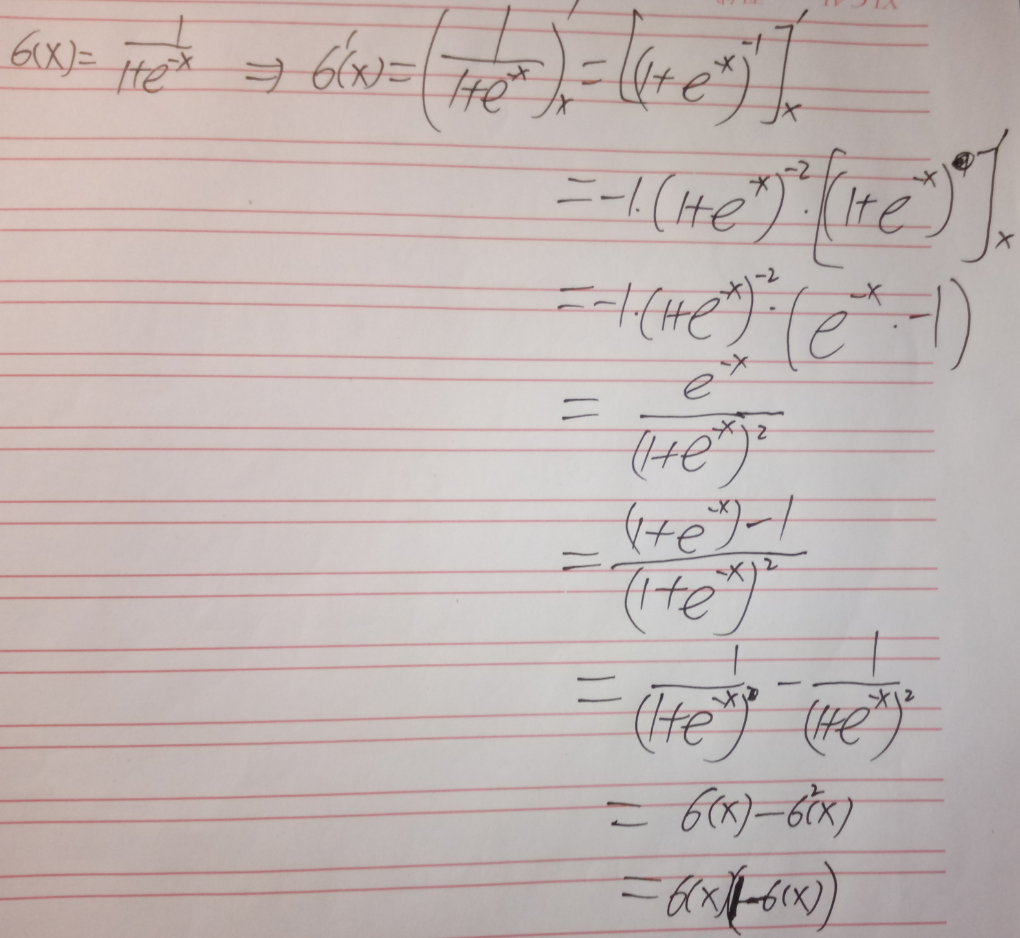 6(x) = \frac{1}{1+e^{-x}} ⇒ 6'(x) = \left(\frac{1}{1+e^{-x}}\right)'_x = \left[(1+e^{-x})^{-1}\right]'_x
= -1·(1+e^{-x})^{-2}·\left[(1+e^{-x})\right]'_x
= -1·(1+e^{-x})^{-2}·(e^{-x}·-1)
= \frac{e^{-x}}{(1+e^{-x})^2}
= \frac{(1+e^{-x})-1}{(1+e^{-x})^2}
= \frac{1}{(1+e^{-x})} - \frac{1}{(1+e^{-x})^2}
= 6(x) - 6^2(x)
= 6(x)(1-6(x))